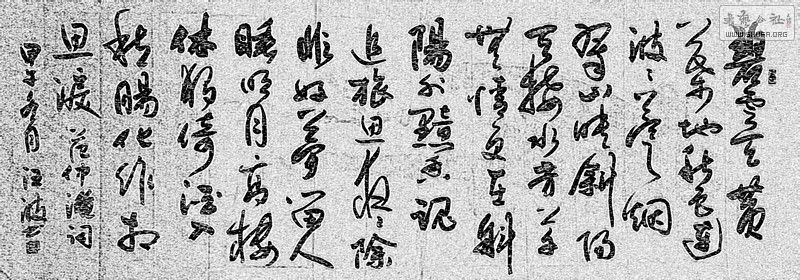 碧雲天黃
葉地秋色連
波々上寒烟
翠山映斜陽
天接水芳草
無情更在斜
陽外黯鄉魂
追旅思夜々除
非好夢留人
睡明月高樓
休獨倚酒入
愁腸化作相
思淚 范仲淹詞
甲午冬月